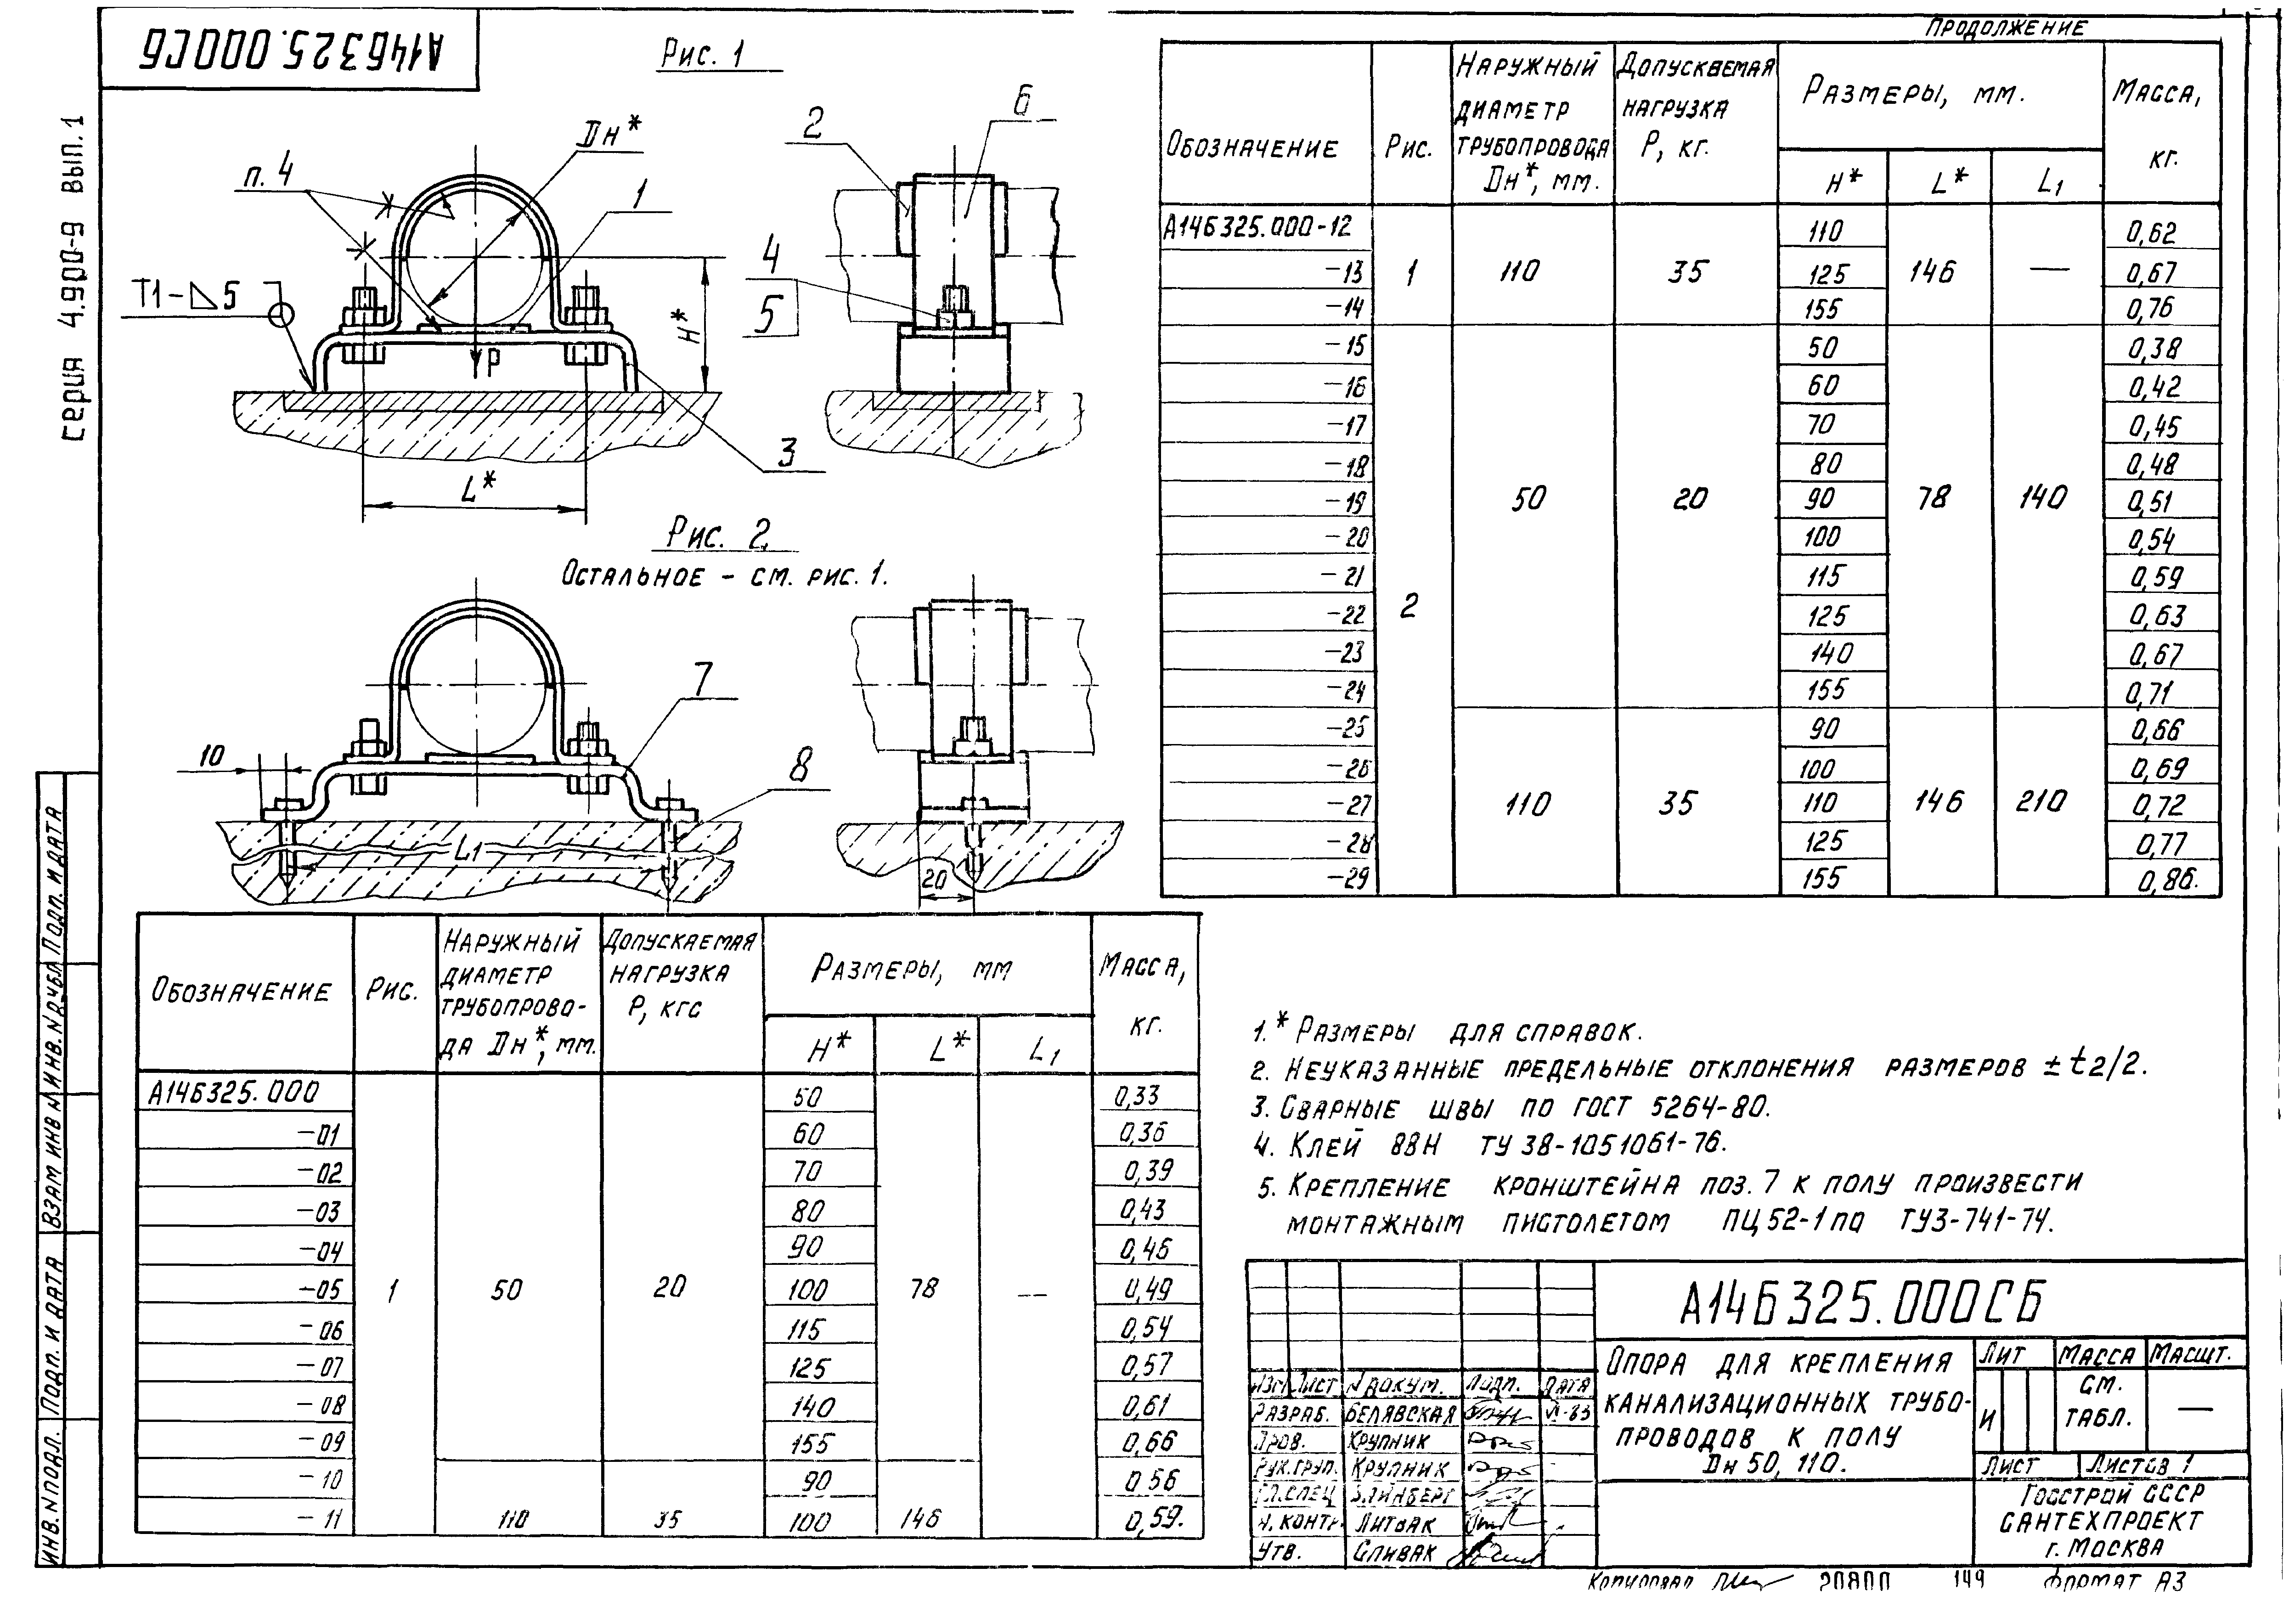 А14Б325.000СБ
серия 4.900-9 вып.1
Рис. 1
п. 4
Dн*
1
Т1-⊿5
H*
P
3
L*
2
6
4
5
Рис. 2
Остальное - см. рис. 1.
7
10
8
L1
20
Обозначение
Рис.
Наружный диаметр трубопрово-да Dн*, мм.
Допускаемая нагрузка Р, кгс
Размеры, мм
H*
L*
L1
Масса, кг.
А14Б325.000 50 0,33
-01 60 0,36
-02 70 0,39
-03 80 0,43
-04 90 0,46
-05 1 50 20 100 78 — 0,49
-06 115 0,54
-07 125 0,57
-08 140 0,61
-09 155 0,66
-10 90 0,56
-11 110 35 100 146 0,59.
Продолжение
Обозначение
Рис.
Наружный диаметр трубопровода Dн*, мм.
Допускаемая нагрузка Р, кг.
Размеры, мм.
H*
L*
L1
Масса, кг.
А14Б325.000-12 110 0,62
-13 1 110 35 125 146 — 0,67
-14 155 0,76
-15 50 0,38
-16 60 0,42
-17 70 0,45
-18 80 0,48
-19 50 20 90 78 140 0,51
-20 100 0,54
-21 115 0,59
-22 2 125 0,63
-23 140 0,67
-24 155 0,71
-25 90 0,66
-26 100 0,69
-27 110 35 110 146 210 0,72
-28 125 0,77
-29 155 0,86.
1.* Размеры для справок.
2. Неуказанные предельные отклонения размеров ± t2/2.
3. Сварные швы по ГОСТ 5264-80.
4. Клей 88Н ТУ 38-1051061-76.
5. Крепление кронштейна поз. 7 к полу произвести
монтажным пистолетом ПЦ 52-1 по ТУ3-741-74.
А14Б325.000СБ
Опора для крепления
канализационных трубо-
проводов к полу
Dн 50, 110.
Лит Масса Масшт.
И см. табл. —
Лист Листов 1
Госстрой СССР
Сантехпроект
г. Москва
Изм Лист N докум. Подп. Дата
Разраб. Белявская VI-83
Пров. Крупник
Рук.груп. Крупник
Гл.спец Вайнберг
Н. контр. Литвак
Утв. Спивак
Копировал 20800 149 Формат А3
Инв. N подл.
Подп. и дата
Взам инв N
Инв. N дубл
Подп. и дата